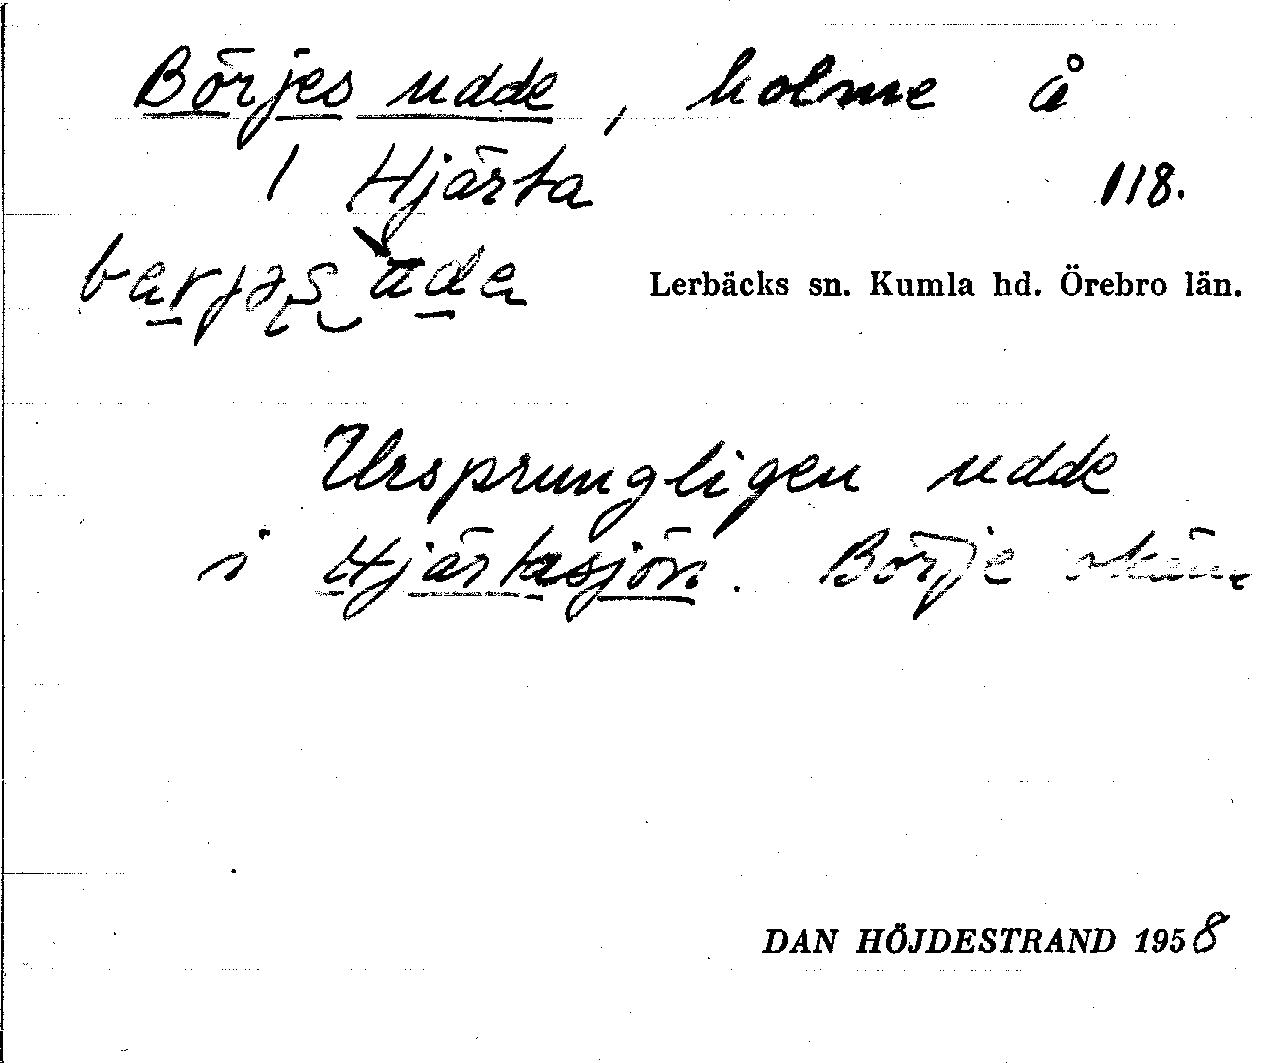 Börjes udde, holme å
1 Hjärta
118.
Lerbäcks sn. Kumla hd. Örebro län.
Ursprungligen udde
i Hjärtasjön. Börje okänd
DAN HÖJDESTRAND 1958